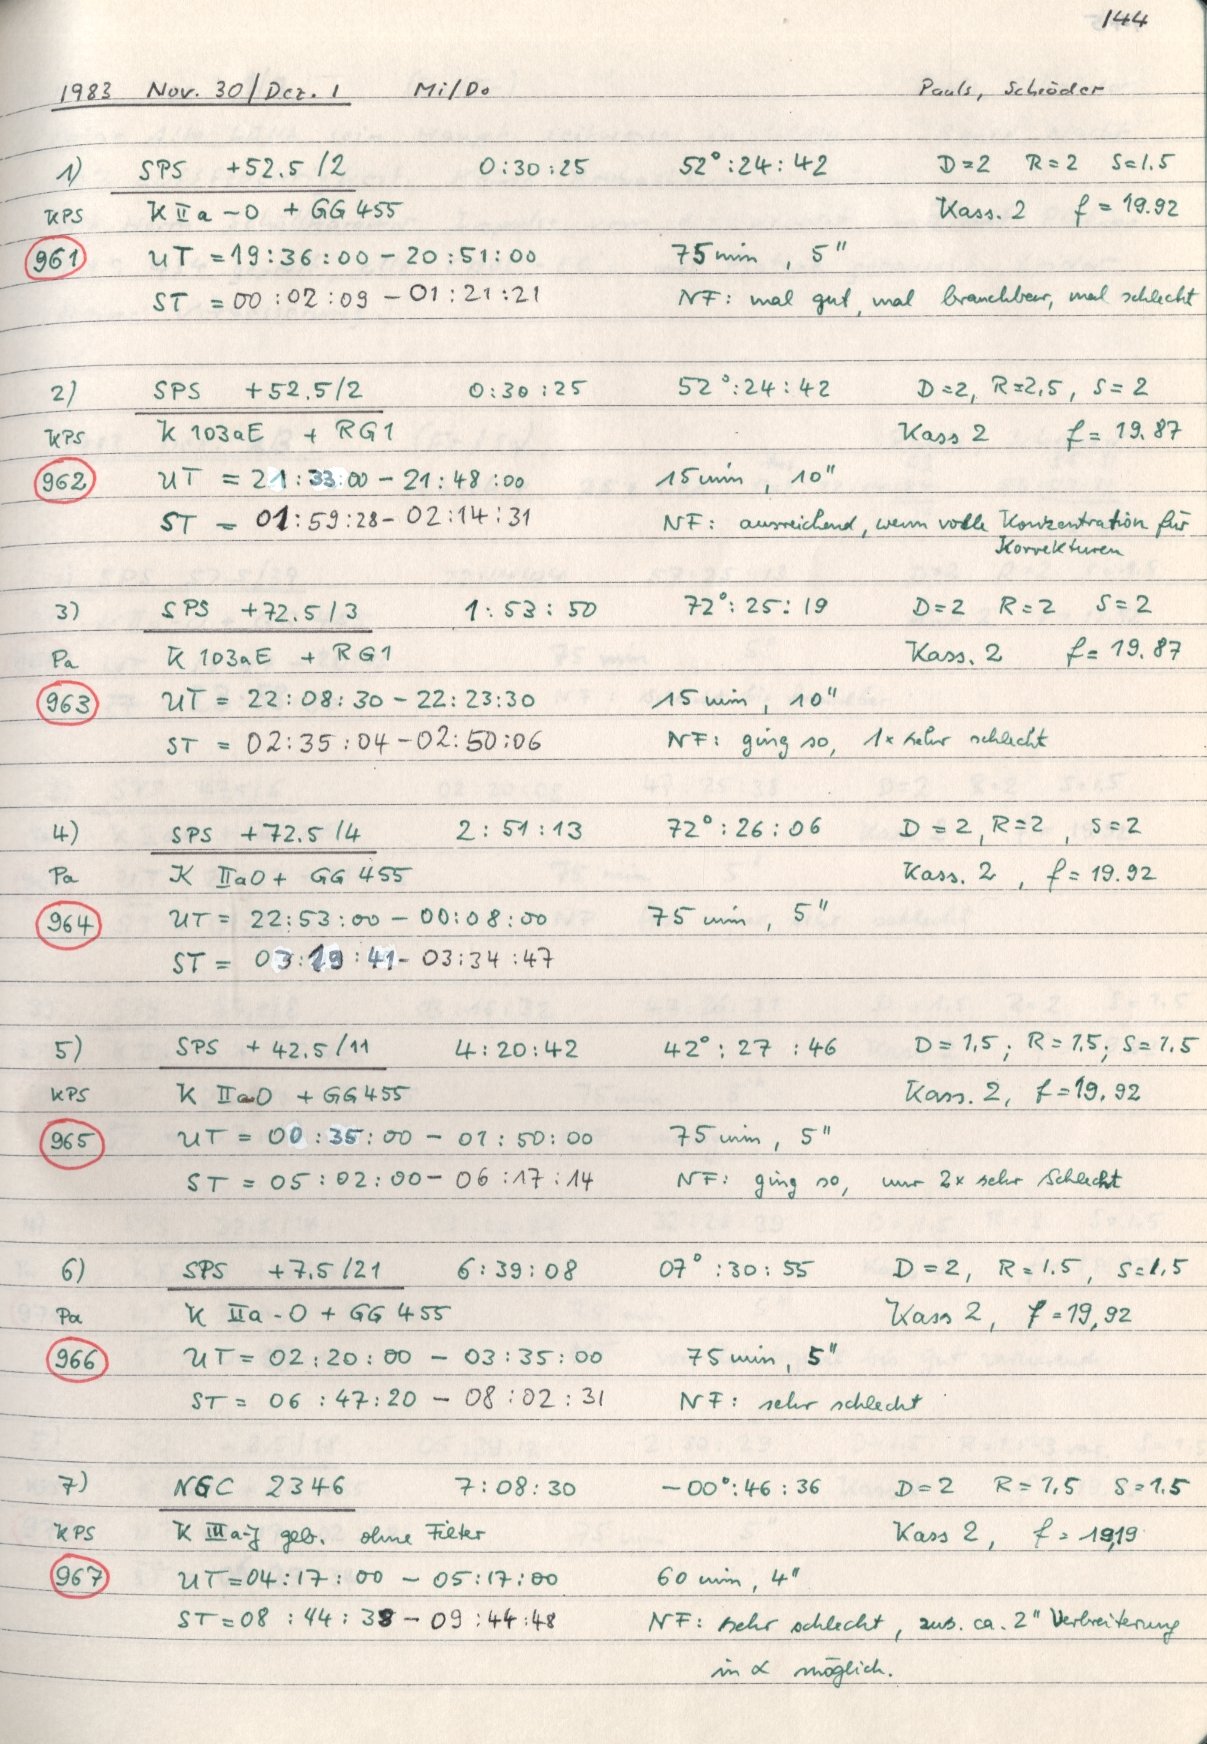 144
1983 Nov. 30/Dez. 1 Mi/Do Pauls, Schröder
1) SPS +52.5/2 0:30:25 52°:24:42 D=2 R=2 S=1.5
KPS K IIa-O + GG 455 Kass. 2 f = 19.92
961 UT = 19:36:00 - 20:51:00 75 min, 5"
ST = 00:02:09 - 01:21:21 NF: mal gut, mal brauchbar, mal schlecht
2) SPS +52.5/2 0:30:25 52°:24:42 D=2, R=2,5, S=2
KPS K 103aE + RG1 Kass 2 f = 19.87
962 UT = 21:33:00 - 21:48:00 15 min, 10"
ST = 01:59:28 - 02:14:31 NF: ausreichend, wenn volle Konzentration für
Korrekturen
3) SPS +72.5/3 1:53:50 72°:25:19 D=2 R=2 S=2
Pa K 103aE + RG1 Kass. 2 f = 19.87
963 UT = 22:08:30 - 22:23:30 15 min, 10"
ST = 02:35:04 - 02:50:06 NF: ging so, 1x sehr schlecht
4) SPS +72.5/4 2:51:13 72°:26:06 D=2, R=2, S=2
Pa K IIaO + GG 455 Kass. 2, f = 19.92
964 UT = 22:53:00 - 00:08:00 75 min, 5"
ST = 03:19:41 - 03:34:47
5) SPS +42.5/11 4:20:42 42°:27:46 D=1,5; R=1,5; S=1.5
KPS K IIaO + GG455 Kass. 2, f = 19.92
965 UT = 00:35:00 - 01:50:00 75 min, 5"
ST = 05:02:00 - 06:17:14 NF: ging so, nur 2x sehr schlecht
6) SPS +7.5/21 6:39:08 07°:30:55 D=2, R=1.5, S=1.5
Pa K IIa-O + GG 455 Kass 2, f = 19,92
966 UT = 02:20:00 - 03:35:00 75 min, 5"
ST = 06:47:20 - 08:02:31 NF: sehr schlecht
7) NGC 2346 7:08:30 -00°:46:36 D=2 R=1,5 S=1.5
KPS K IIIa-J geb. ohne Filter Kass 2, f = 19,19
967 UT = 04:17:00 - 05:17:00 60 min, 4"
ST = 08:44:38 - 09:44:48 NF: sehr schlecht, zus. ca. 2" Verbreiterung
in α möglich.